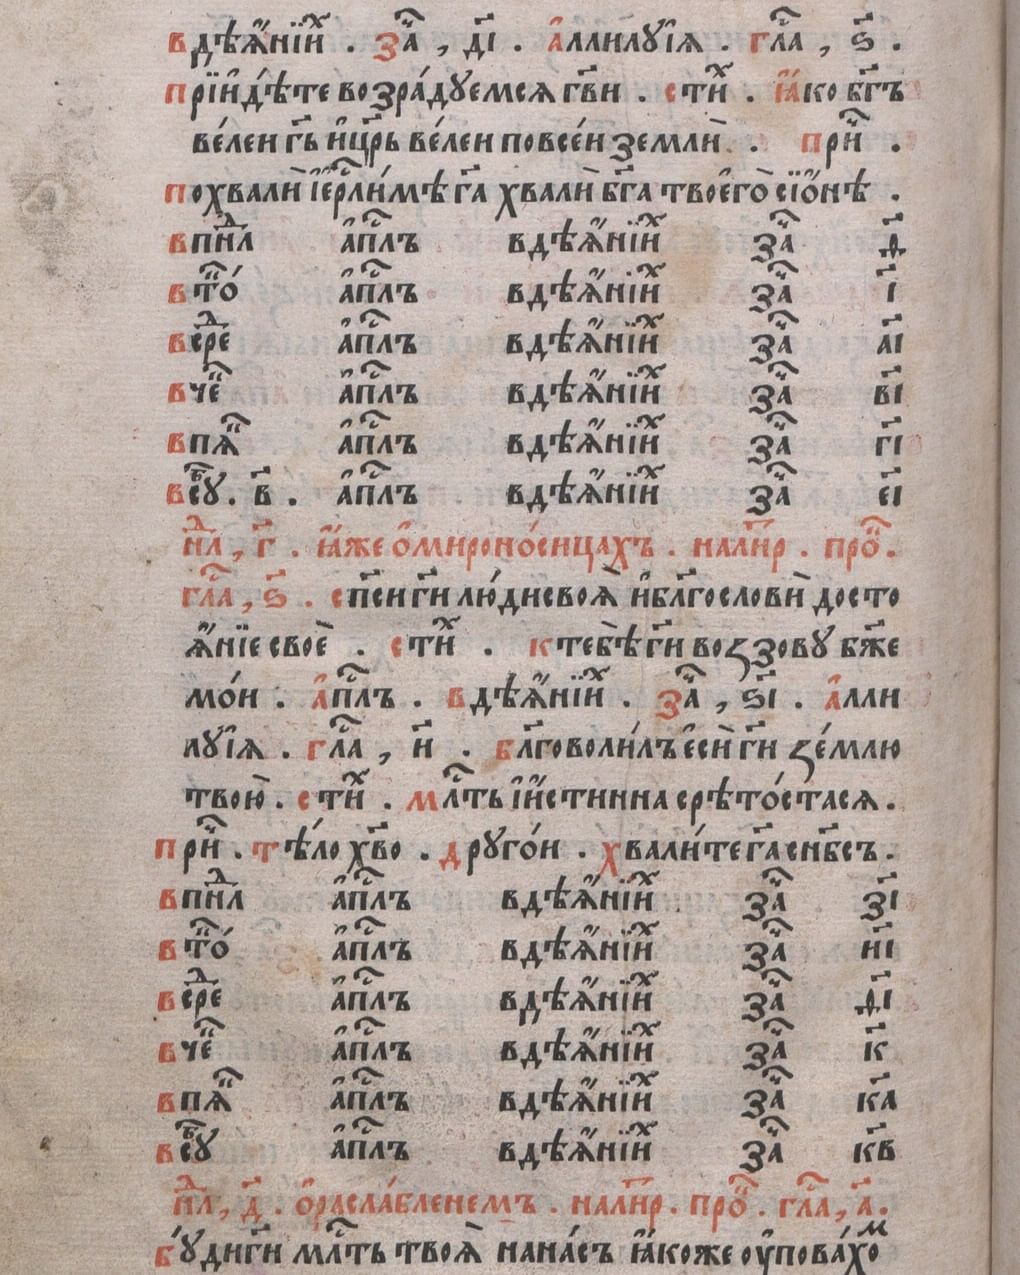 вдѣѧ҆нїи҆х . за҄ , д҃і . а҆ллилꙋ́їѧ . гл҄а , ѕ҃ .
прїи҆дѣ́те возра́дꙋемсѧ гв҃и . сти҆х . ꙗ҆́ко бг҃ъ
ве́леи гь҃ и҆цр҃ь ве́леи повсе́и землѝ . при҆҄ .
похвалѝ і҆е҆рл҃и́мѣ га҃ хвалѝ бг҃а твоего̀ сїѡ́нѣ .
впн҃л а҆пⷭ҇лъ вдѣѧ҆нїи҆х за҄ ѳ҃
вто҃́ а҆пⷭ҇лъ вдѣѧ҆нїи҆х за҄ і҃
всре а҆пⷭ҇лъ вдѣѧ҆нїи҆х за҄ аі
вче҄ а҆пⷭ҇лъ вдѣѧ҆нїи҆х за҄ ві
впѧ҄ а҆пⷭ҇лъ вдѣѧ҆нїи҆х за҄ гі
всꙋ . в҃ . а҆пⷭ҇лъ вдѣѧ҆нїи҆х за҄ еі
нⷣл , г҃ . ꙗ҆́же ѡ҆мироно́сицахъ . налиⷮр . про҄ .
гл҄а , ѕ҃ . спⷭ҇и гн҃и лю́ди своѧ̀ и҆блг҃ословѝ досто
ѧ҆нїе своѐ . сти҆х . ктебѣ̀ гн҃и воззовꙋ̀ бж҃е
мо́и . а҆пⷭ҇лъ . вдѣѧ҆нїи҆х . за҄ , ѕ҃і . а҆лли
лꙋ́їѧ . гл҄а , и҃ . блг҃оволи́лъ є҆сѝ гн҃и зе́млю
твою̀ . сти҆х . млⷭ҇ть і҆и҆́стинна срѣто́стасѧ .
при҆҄ . тѣ́ло хв҃о . дрꙋго́и . хвали́те га҃ снб҃съ .
впн҃л а҆пⷭ҇лъ вдѣѧ҆нїи҆х за҄ зі
вто҃́ а҆пⷭ҇лъ вдѣѧ҆нїи҆х за҄ иі
всре а҆пⷭ҇лъ вдѣѧ҆нїи҆х за҄ ѳі
вче҄ а҆пⷭ҇лъ вдѣѧ҆нїи҆х за҄ к҃
впѧ҄ а҆пⷭ҇лъ вдѣѧ҆нїи҆х за҄ ка
всꙋ а҆пⷭ҇лъ вдѣѧ҆нїи҆х за҄ кв
нⷣл , д҃ . ѡ҆расла́бленемъ . налиⷮр . про҄ . гл҄а , а҃ .
бꙋ́ди гн҃и млⷭ҇ть твоѧ̀ нана́съ ꙗ҆́коже оу҆пова́хоⷨ